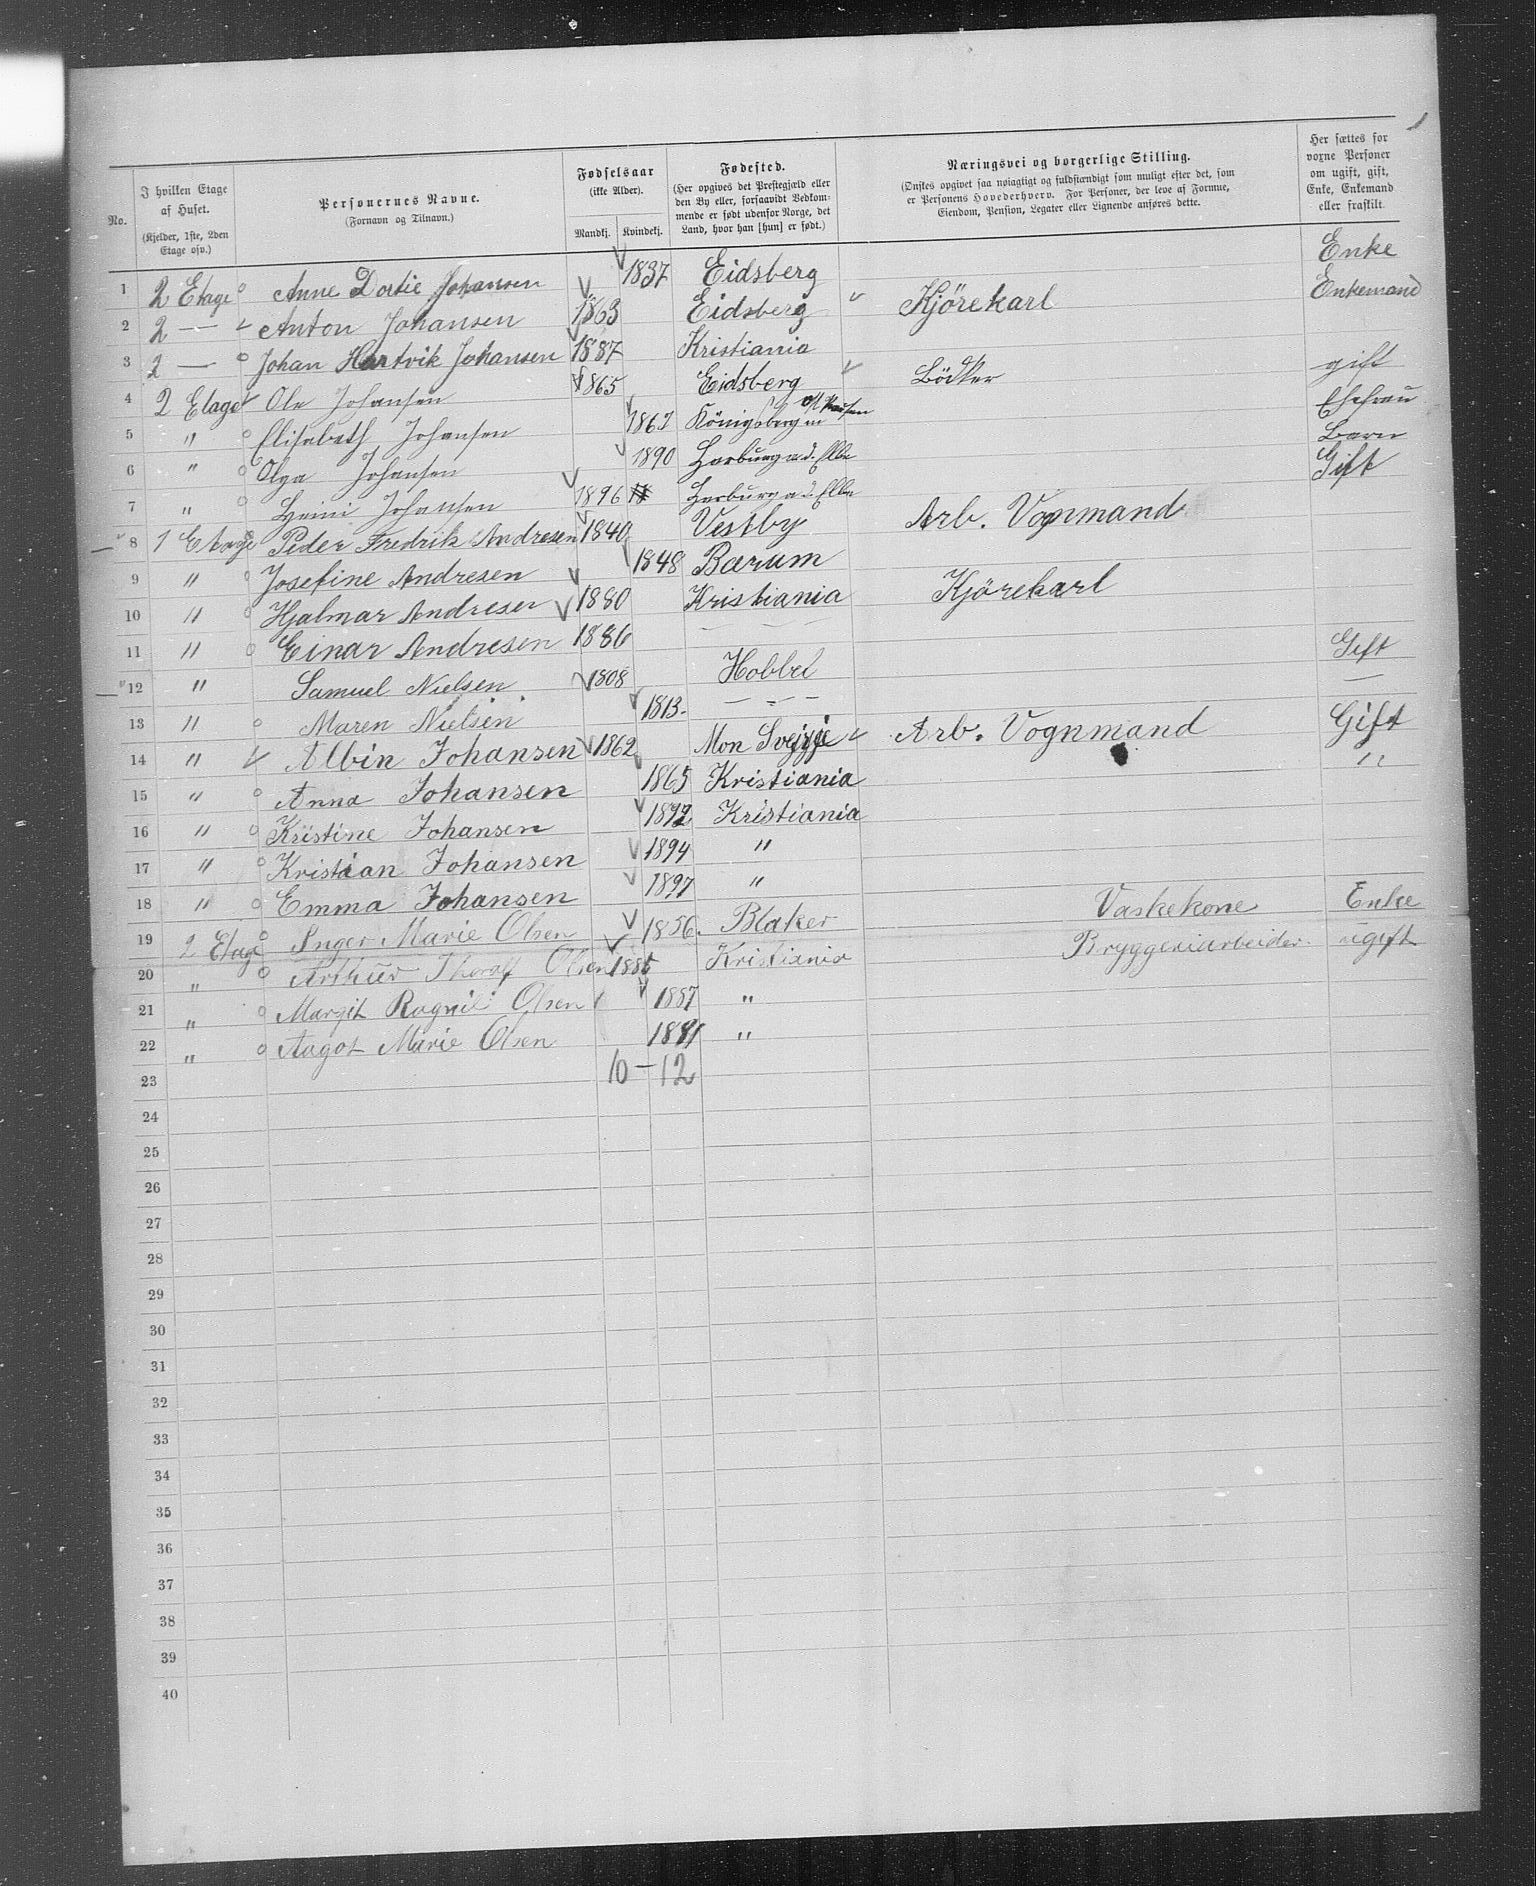 No.
I hvilken Etage af Huset.
(Kjelder, 1ste, 2den Etage osv.)
Personernes Navne.
(Fornavn og Tilnavn.)
Fødselsaar
(ikke Alder).
Mandkj. Kvindekj.
Fødested.
(Her opgives det Prestegjæld eller den By eller, forsaavidt Vedkommende er født udenfor Norge, det Land, hvor han [hun] er født.)
Næringsvei og borgerlige Stilling.
(Ønskes opgivet saa nøiagtigt og fuldstændigt som muligt efter det, som er Personens Hovederhverv. For Personer, der leve af Formue, Eiendom, Pension, Legater eller Lignende anføres dette.
Her sættes for voxne Personer om ugift, gift, Enke, Enkemand eller fraskilt.
1 2 Etage Anne Dortie Johansen 1837 Eidsberg Enke
2 2 — Anton Johansen 1863 Eidsberg Kjörekarl Enkemand
3 2 — Johan Hartvik Johansen 1887 Kristiania
4 2 Etage Ole Johansen 1865 Eidsberg Bödker gift
5 " Elisabeth Johansen 1862 Königsberg Ehefrau
6 " Olga Johansen 1890 Harburg a. d. Elbe Barn
7 " Heini Johansen 1896 Harburg a d Elbe Gift
8 1 Etage Peder Fredrik Andresen 1840 Vestby Arb. Vognmand
9 " Josefine Andresen 1848 Bærum
10 " Hjalmar Andresen 1880 Kristiania Kjörekarl
11 " Einar Andresen 1886 — — —
12 " Samuel Nielsen 1808 Hobbel Gift
13 " Maren Nielsen 1813. — — — —
14 " Albin Johansen 1862 Mon Svejrje Arb. Vognmand Gift
15 " Anna Johansen 1865 Kristiania "
16 " Kristine Johansen 1892 Kristiania
17 " Kristian Johansen 1894 "
18 " Emma Johansen 1897 "
19 2 Etag Inger Marie Olsen 1856. Blaker Vaskekone Enke
20 " Arthur Thoralf Olsen 1885 Kristiania Bryggeriarbeider. ugift
21 " Margit Ragnil Olsen 1887 "
22 " Aagot Marie Olsen 1891 "
23 10 — 12
24
25
26
27
28
29
30
31
32
33
34
35
36
37
38
39
40